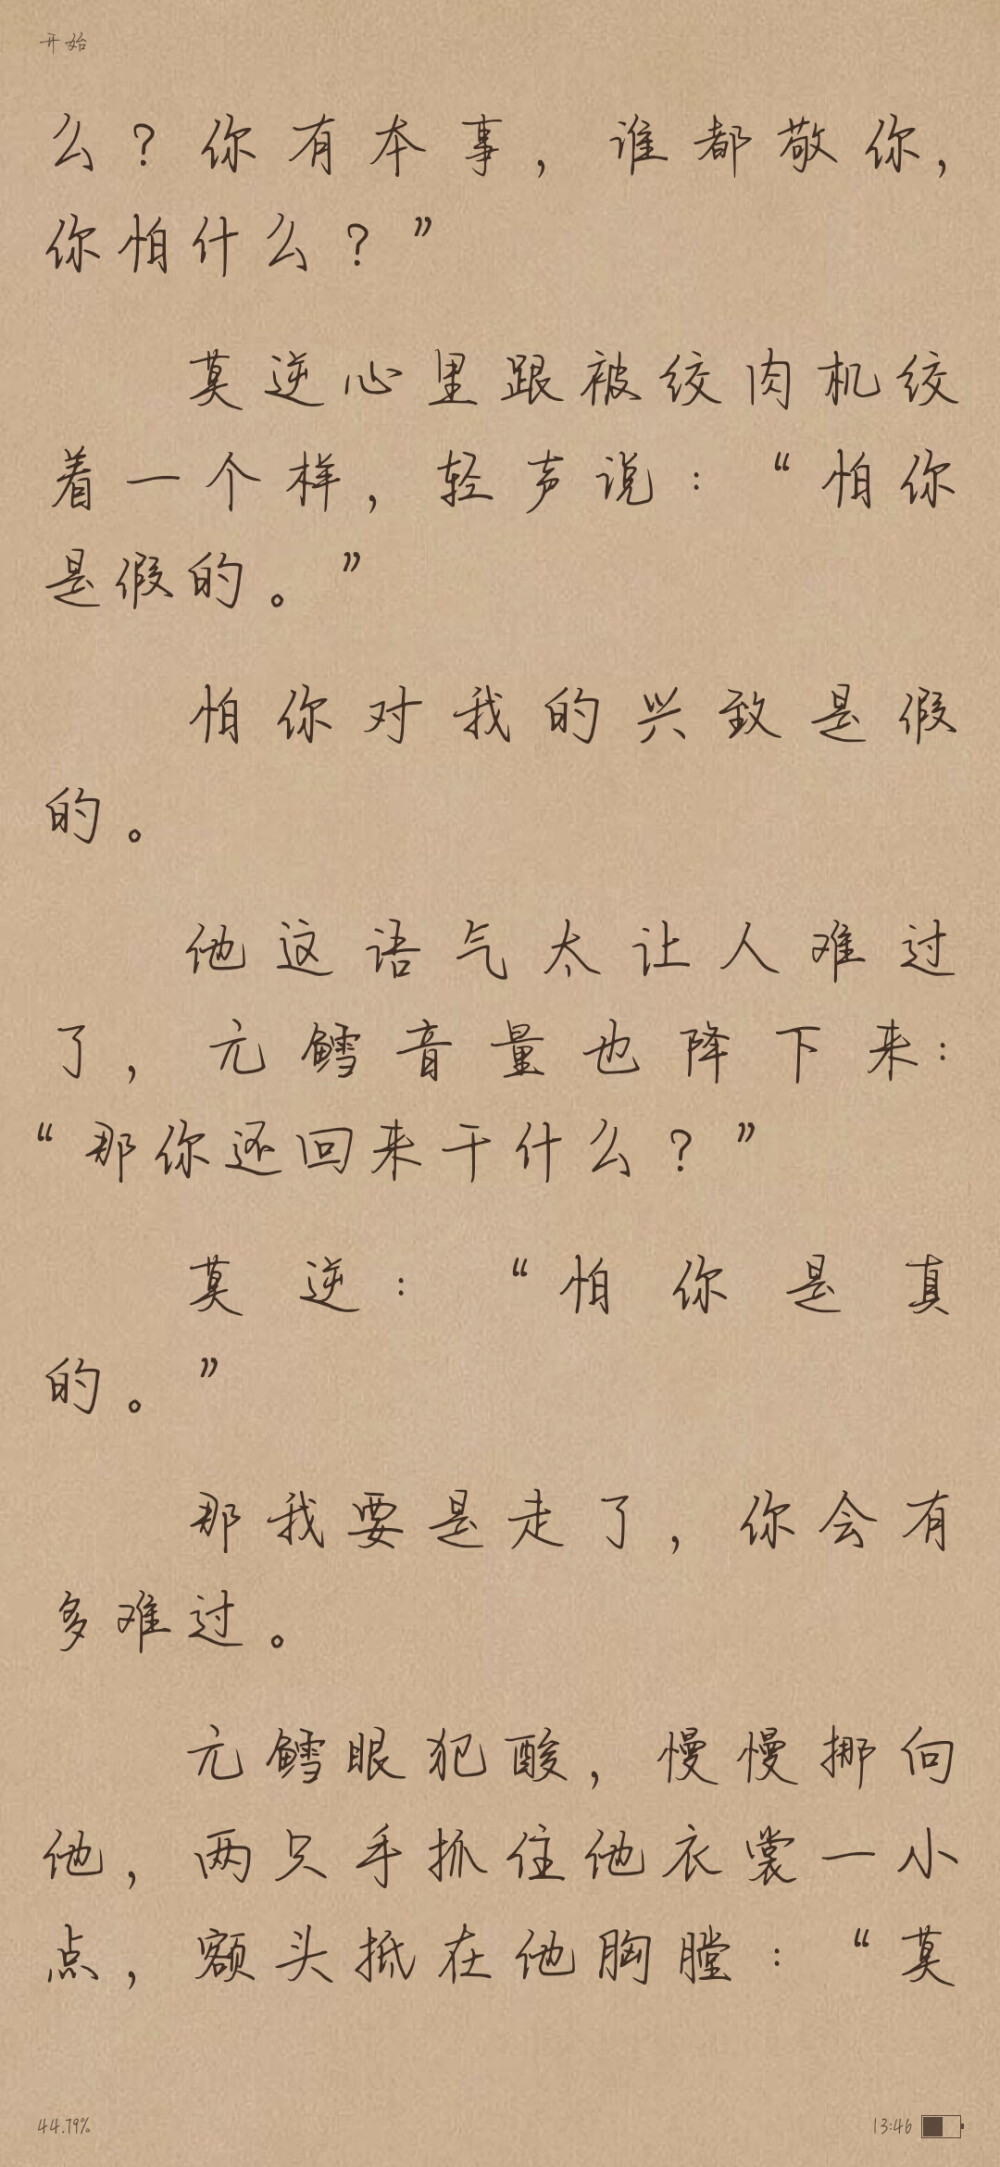 开始
么？你有本事，谁都敬你，
你怕什么？”
莫逆心里跟被绞肉机绞
着一个样，轻声说：“怕你
是假的。”
怕你对我的兴致是假
的。
他这语气太让人难过
了，亓鳕音量也降下来：
“那你还回来干什么？”
莫逆：“怕你是真
的。”
那我要是走了，你会有
多难过。
亓鳕眼犯酸，慢慢挪向
他，两只手抓住他衣裳一小
点，额头抵在他胸膛：“莫
44.79%
13:46